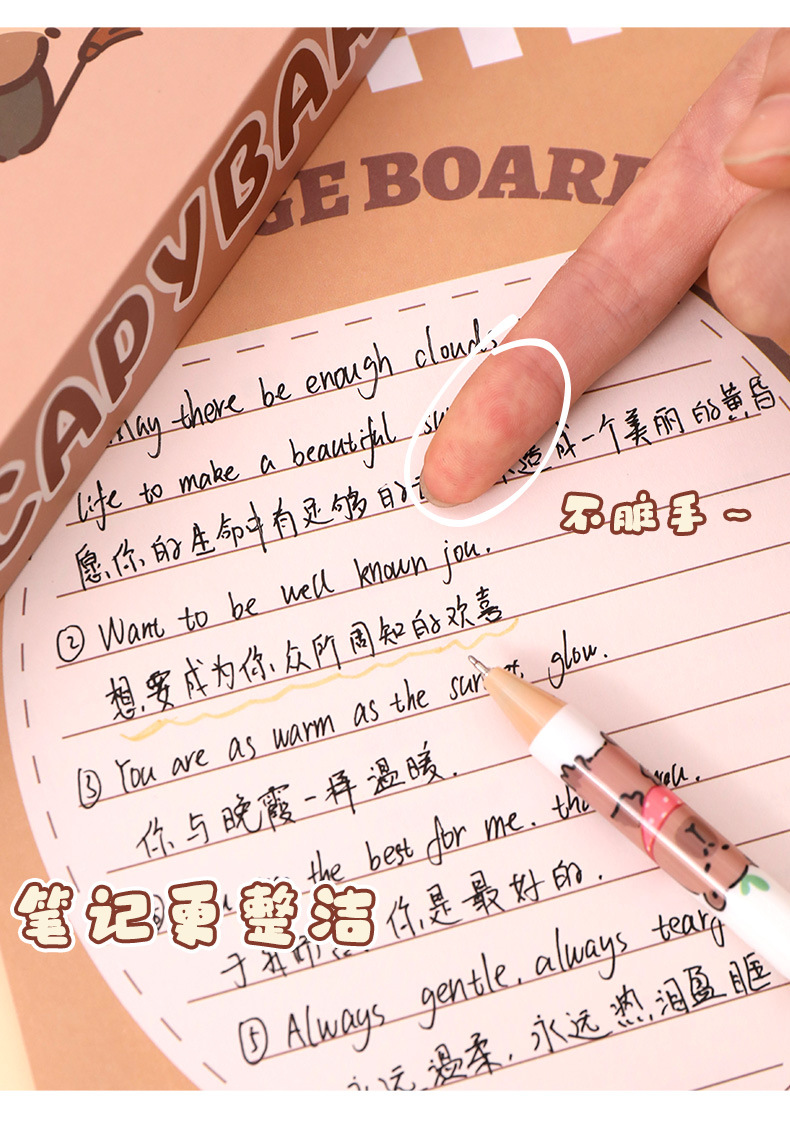 CAPYBARA
GE BOARD
May there be enough clouds
life to make a beautiful
愿你的生命中有足够的 造成一个美丽的黄昏
不脏手~
② Want to be well known jou.
想要成为你众所周知的欢喜
③ You are as warm as the sunset glow.
你与晚霞一样温暖.
the best for me. you.
笔记更整洁
你是最好的.
⑤ Always gentle, always teary
永远温柔,永远热泪盈眶